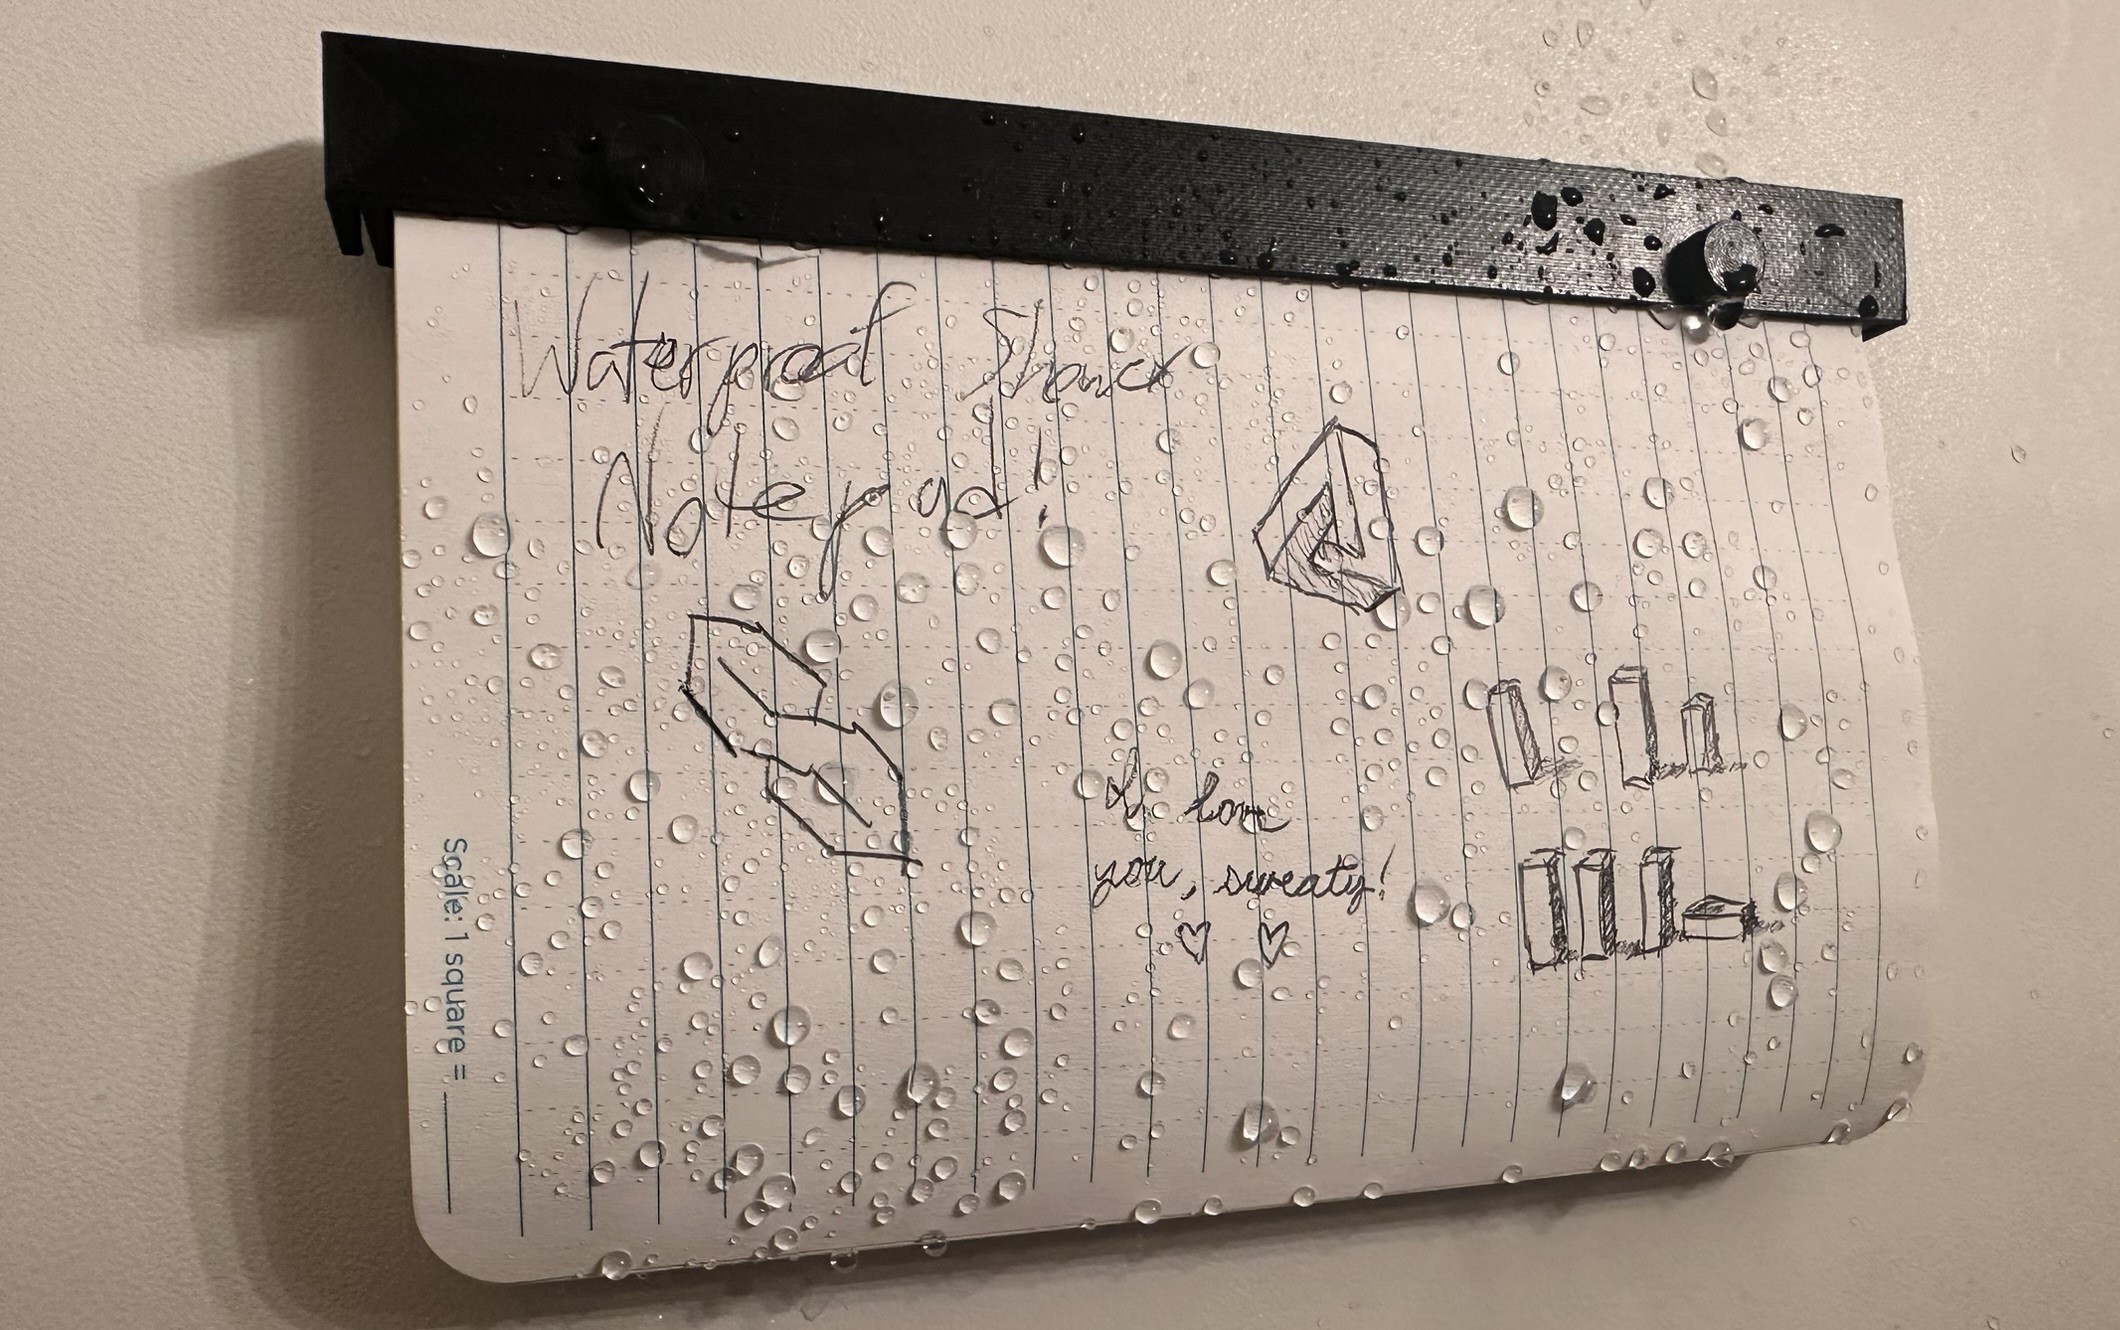 Waterproof Shower
Notepad!
I love
you, sweaty!
Scale: 1 square =